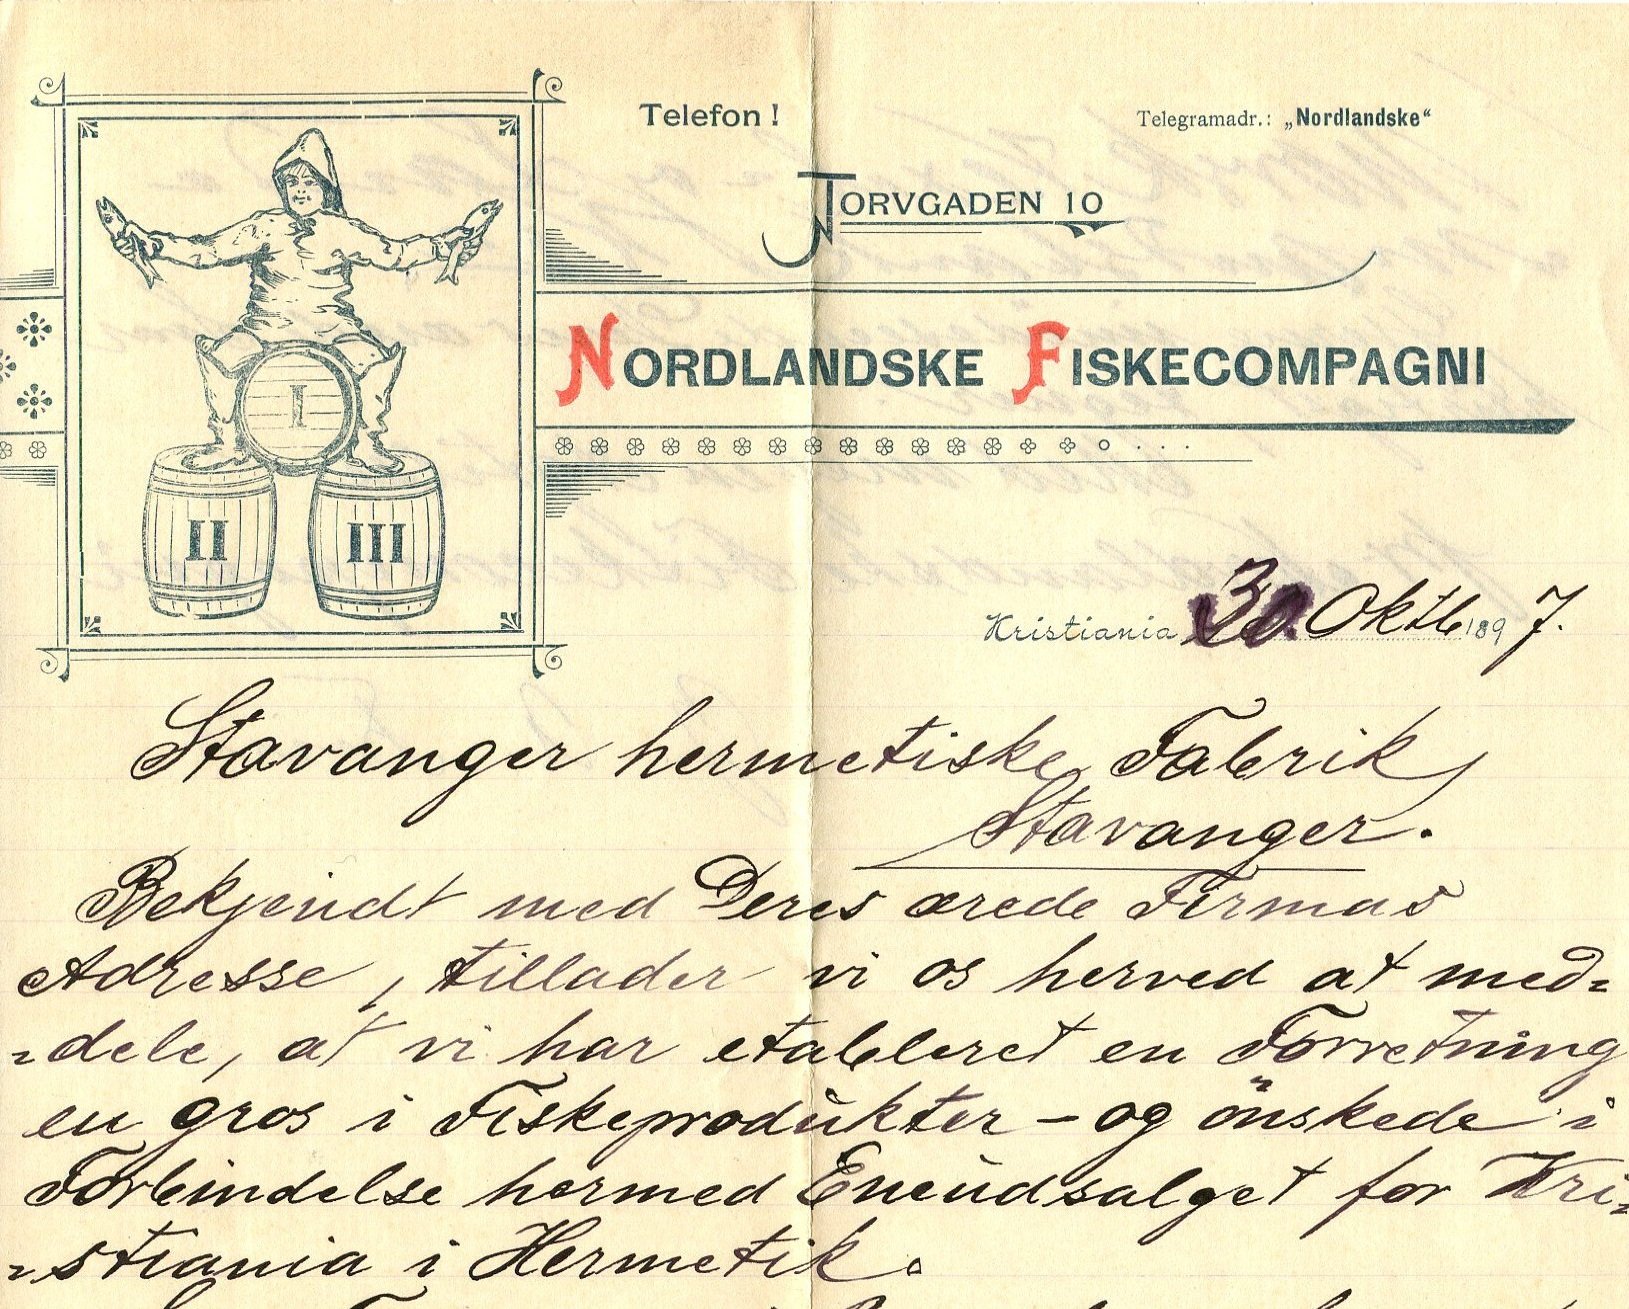 Telefon!
Telegramadr.: „Nordlandske“
TORVGADEN 10
NORDLANDSKE FISKECOMPAGNI
I
II
III
Kristiania 30. Oktb 1897.
Stavanger hermetiske Fabrik
Stavanger.
Bekjendt med Deres ærede Firmas
Adresse, tillader vi os herved at med=
=dele, at vi har etableret en Forretning
en gros i Fiskeprodukter – og önskede i
Forbindelse hermed Eneudsalget for Kri=
=stiania i Hermetik.